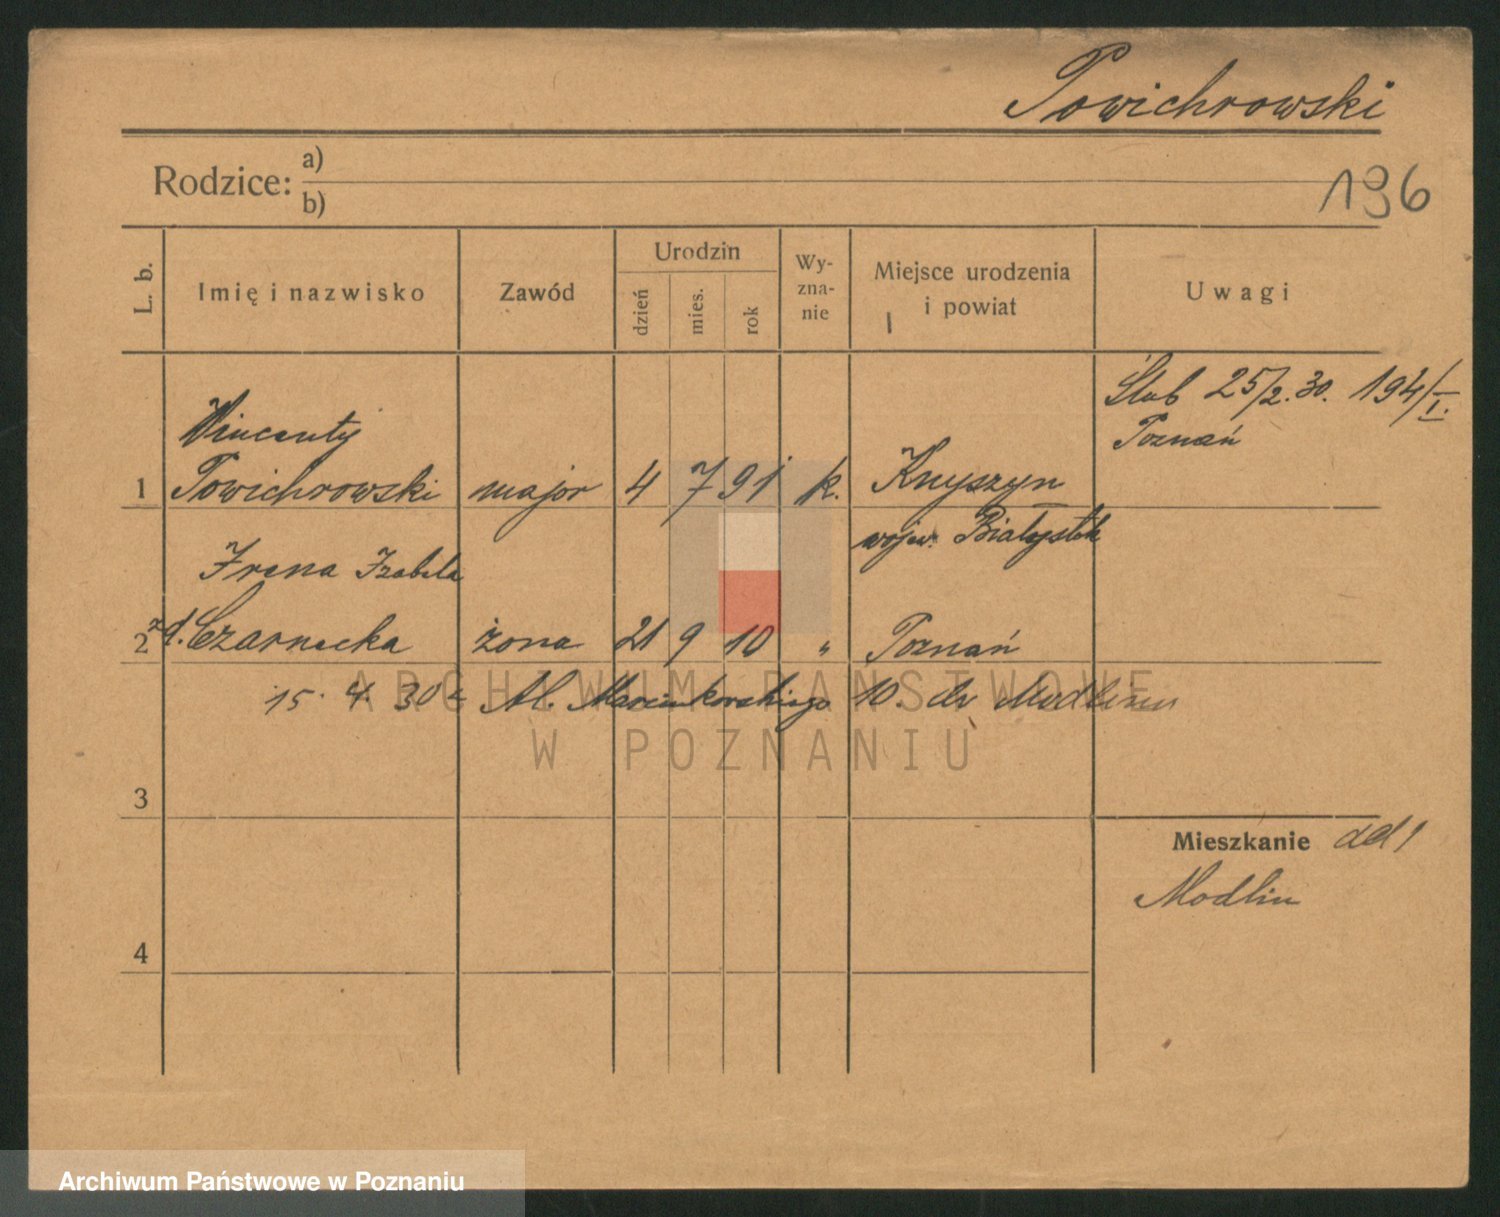 Powichrowski
Rodzice: a)
b)
196
L. b.
Imię i nazwisko
Zawód
Urodzin
dzień
mies.
rok
Wy-
zna-
nie
Miejsce urodzenia
i powiat
Uwagi
Ślub 25/2.30. 194/I.
Poznań
Wincenty
1 Powichrowski major 4 7 91 k. Knyszyn
wojew. Białystok
Irena Izabela
2 z d. Czarnecka żona 21 9 10 " Poznań
15. 4. 30 Al. Marcinkowskiego 10. do Modlina
3
Mieszkanie
Modlin
4
ARCHIWUM PAŃSTWOWE
W POZNANIU
Archiwum Państwowe w Poznaniu